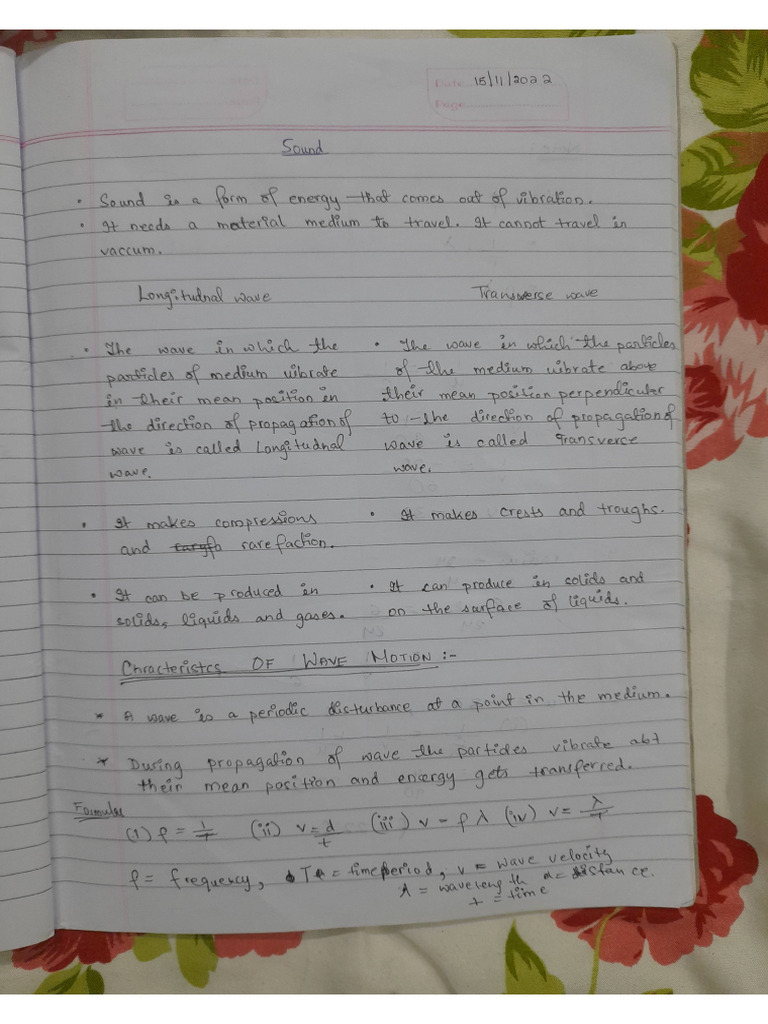 Date 15/11/2022
Page
Sound
• Sound is a form of energy that comes out of vibration.
• It needs a material medium to travel. It cannot travel in
vaccum.
Longitudnal wave
Transverse wave
• The wave in which the
particles of medium vibrate
in their mean position in
the direction of propagation of
wave is called Longitudnal
wave.
• The wave in which the particles
of the medium vibrate above
their mean position perpendicular
to the direction of propagation of
wave is called Transverce
wave.
• It makes compressions
and rarefaction.
• It makes crests and troughs.
• It can be produced in
solids, liquids and gases.
• It can produce in solids and
on the surface of liquids.
Chracteristcs OF WAVE MOTION :-
* A wave is a periodic disturbance at a point in the medium.
* During propagation of wave the particles vibrate abt
their mean position and energy gets transferred.
Formulas
(i) f = 1/T (ii) v = d/t (iii) v = f λ (iv) v = λ/T
f = frequency, T = timeperiod, v = wave velocity
λ = wavelength d = distance.
t = time